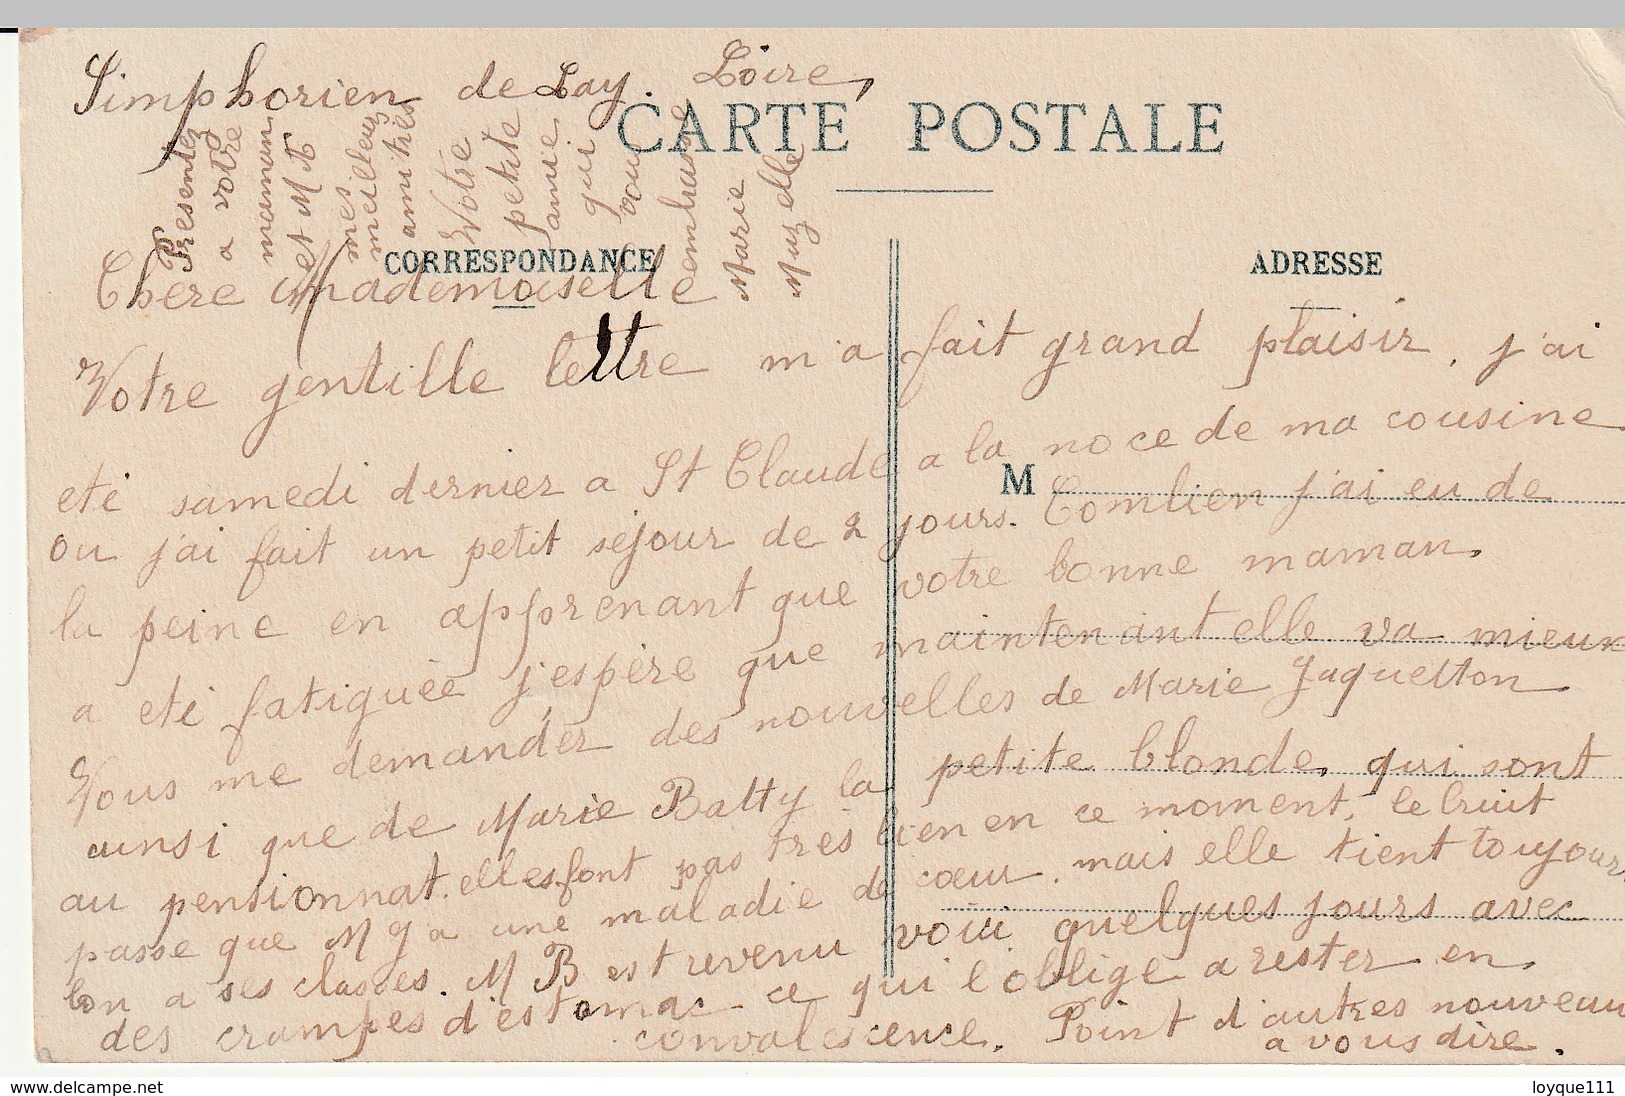 Simphorien de Lay. Loire,
CARTE POSTALE
CORRESPONDANCE
ADRESSE
M
Chere Mademoiselle
Votre gentille lettre m'a fait grand plaisir. j'ai
eté samedi dernier a St Claude a la noce de ma cousine
ou j'ai fait un petit séjour de 2 jours. Combien j'ai eu de
la peine en apprenant que votre bonne maman
a eté fatiguée j'espère que maintenant elle va mieux
Vous me demander des nouvelles de Marie Jaquetton
ainsi que de Marie Batty la petite blonde, qui sont
au pensionnat. elles font pas très bien en ce moment, le bruit
passe que M J a une maladie de cœur. mais elle tient toujours
bon a ses classes. M B est revenu voici quelques jours avec
des crampes d'estomac ce qui l'oblige a rester en
convalescence. Point d'autres nouveau
a vous dire.
Presentez
a votre
maman
et M A
mes
meilleurs
amitiés
Votre
petite
amie
qui
vous
embrasse
Marie
Muzelle
www.delcampe.net
loyque111